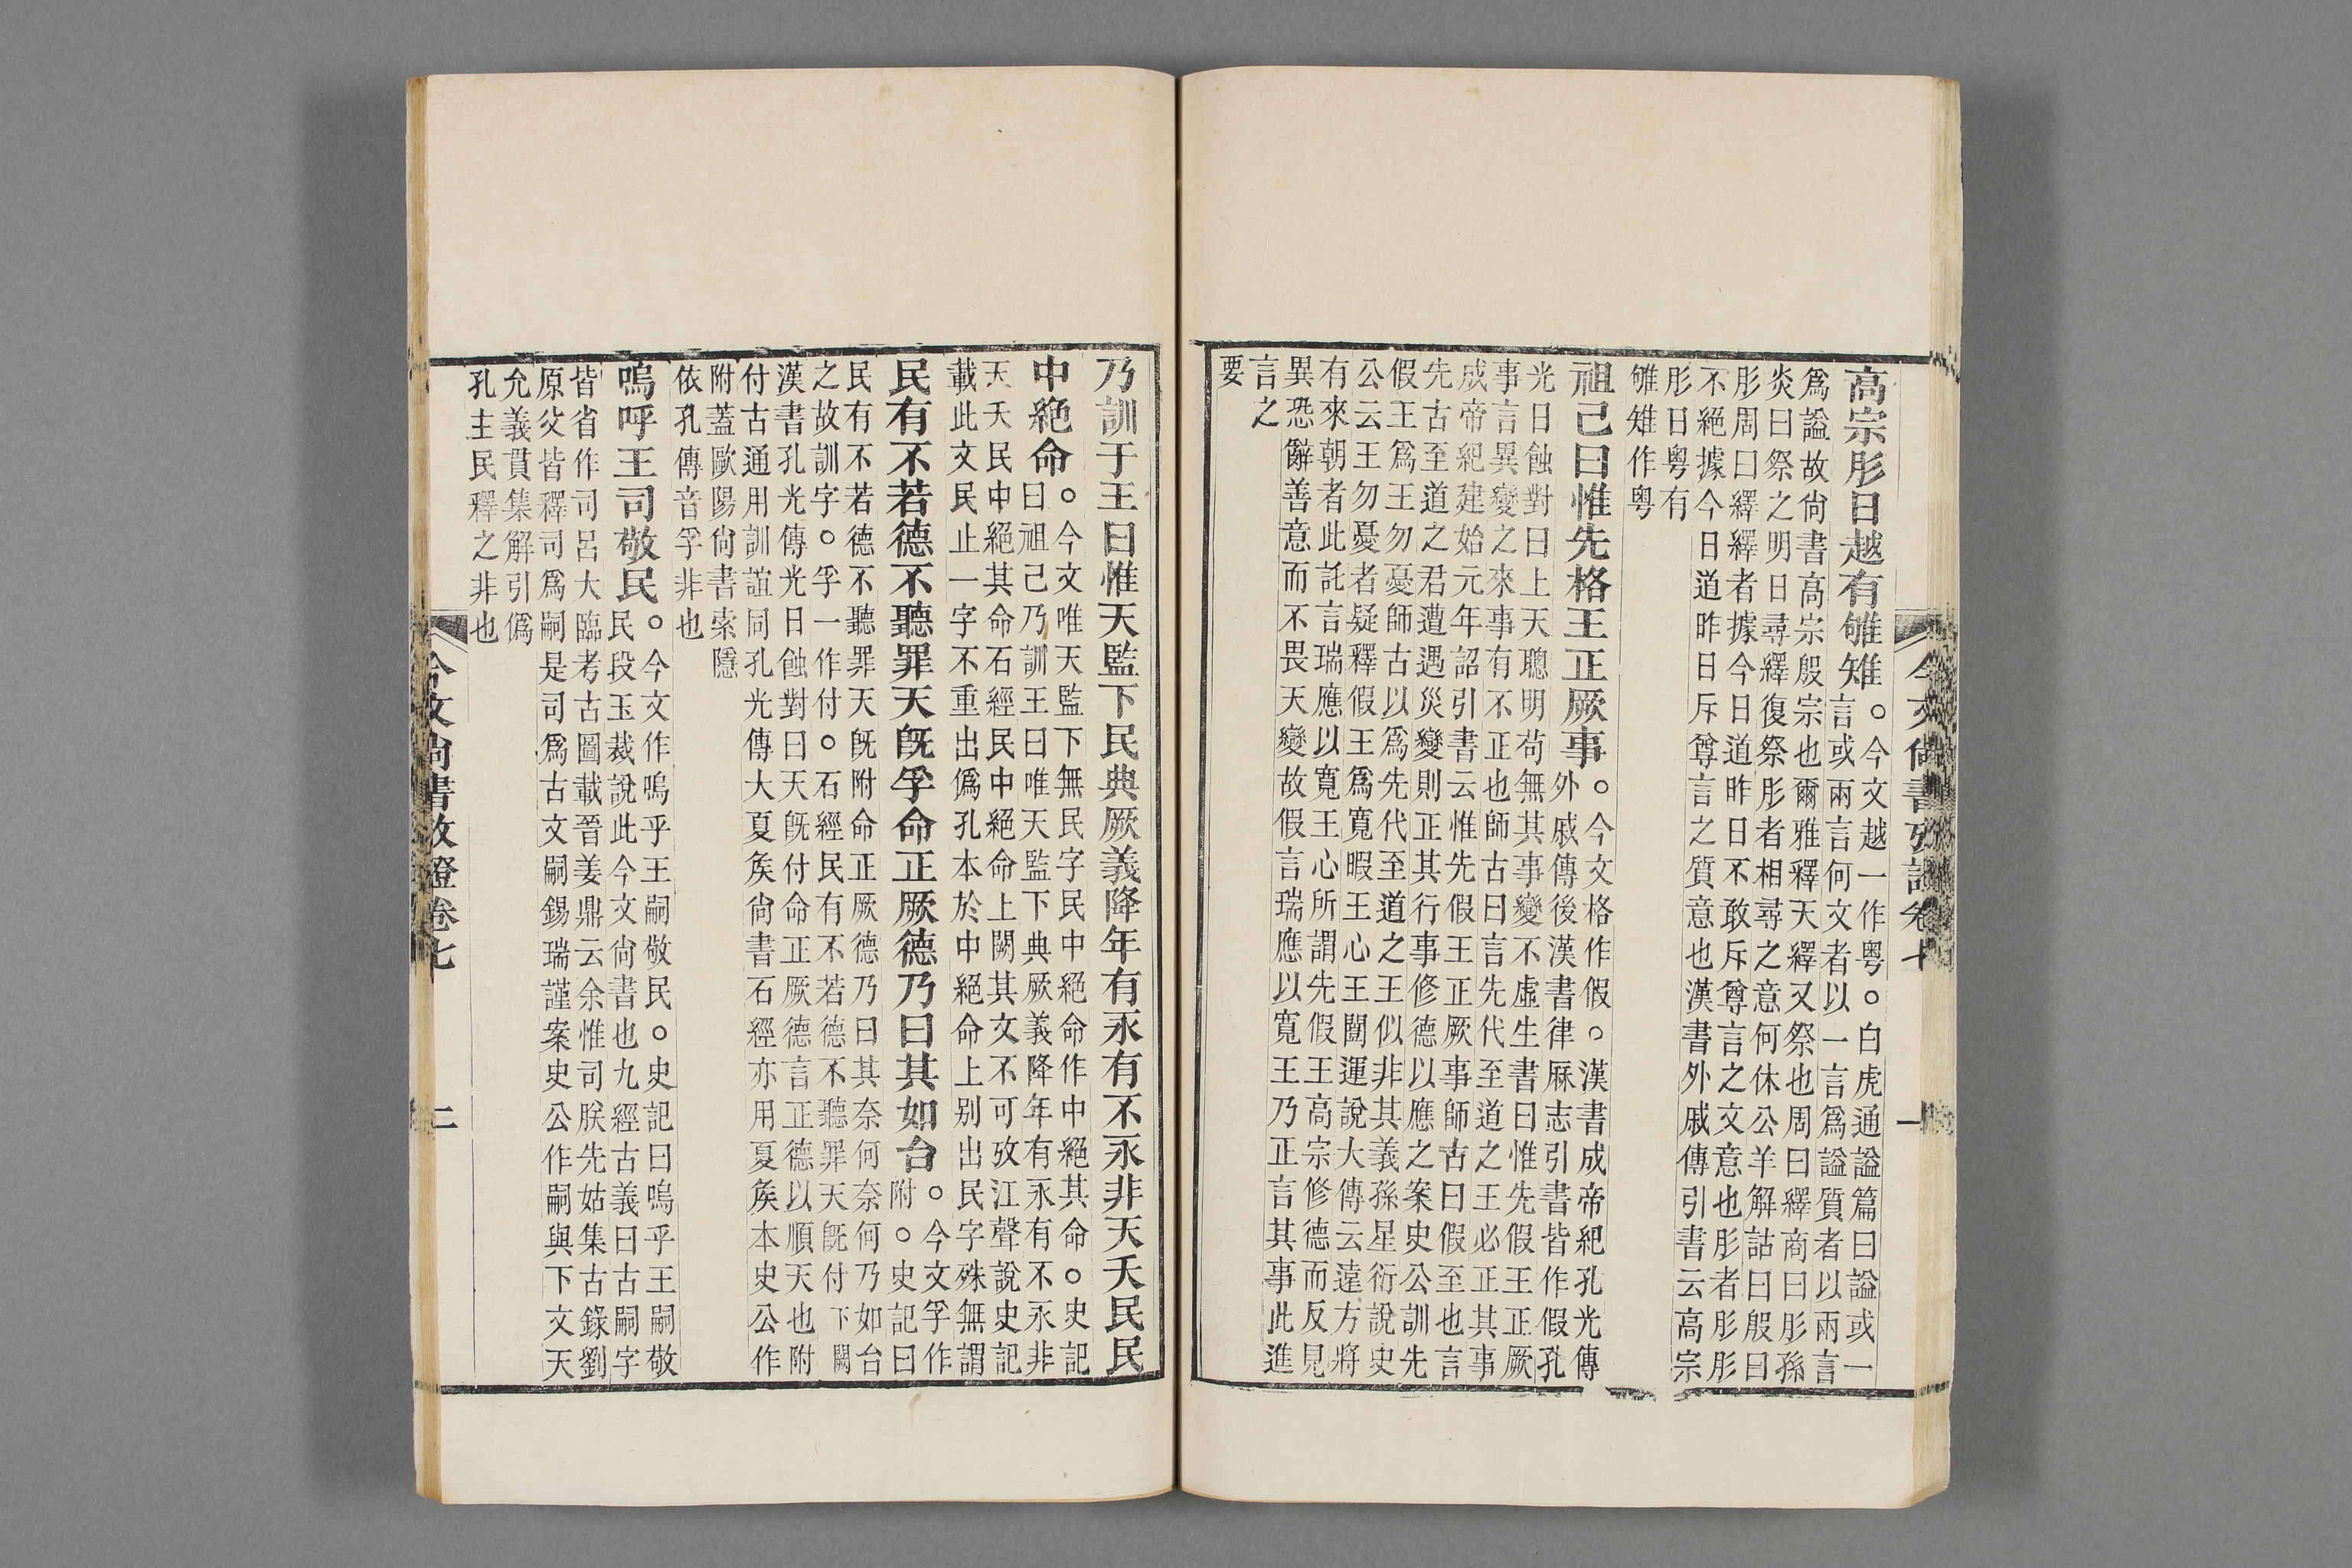 今文尚書攷證卷七 一
高宗肜日越有雊雉
。今文越一作粵。白虎通謚篇曰謚或一
言或兩言何文者以一言爲謚質者以兩言
爲謚故尚書高宗殷宗也爾雅釋天繹又祭也周曰繹商曰肜孫
炎曰祭之明日尋繹復祭肜者相尋之意何休公羊解詁曰殷曰
肜周曰繹繹者據今日道昨日不敢斥尊言之文意也肜者肜肜
不絕據今日道昨日斥尊言之質意也漢書外戚傳引書云高宗
肜日粵有
雊雉作粵
祖己曰惟先格王正厥事
。今文格作假。漢書成帝紀孔光傳
外戚傳後漢書律厤志引書皆作假孔
光日蝕對曰上天聰明苟無其事變不虛生書曰惟先假王正厥
事言異變之來事有不正也師古曰言先代至道之王必正其事
成帝紀建始元年詔引書云惟先假王正厥事師古曰假至也言
先古至道之君遭遇災變則正其行事修德以應之案史公訓先
假王爲王勿憂師古以爲先代至道之王似非其義孫星衍說史
公云王勿憂者疑釋假王爲寬暇王心王闓運說大傳云遠方將
有來朝者此託言瑞應以寬王心所謂先假王高宗修德而反見
異恐辭善意而不畏天變故假言瑞應以寬王乃正言其事此進
言之
要
乃訓于王曰惟天監下民典厥義降年有永有不永非天夭民民
中絕命
。今文唯天監下無民字民中絕命作中絕其命。史記
曰祖己乃訓王曰唯天監下典厥義降年有永有不永非
天夭民中絕其命石經民中絕命上闕其文不可攷江聲說史記
載此文民止一字不重出僞孔本於中絕命上別出民字殊無謂
民有不若德不聽罪天旣孚命正厥德乃曰其如台
。今文孚作
附。史記曰
民有不若德不聽罪天旣附命正厥德乃曰其奈何奈何乃如台
之故訓字。孚一作付。石經民有不若德不聽罪天旣付下闕
漢書孔光傳光日蝕對曰天旣付命正厥德言正德以順天也附
付古通用訓誼同孔光傳大夏矦尚書石經亦用夏矦本史公作
附蓋歐陽尚書索隱
依孔傳音孚非也
嗚呼王司敬民
。今文作嗚乎王嗣敬民。史記曰嗚乎王嗣敬
民段玉裁說此今文尚書也九經古義曰古嗣字
皆省作司呂大臨考古圖載晉姜鼎云余惟司朕先姑集古錄劉
原父皆釋司爲嗣是司爲古文嗣錫瑞謹案史公作嗣與下文天
允義貫集解引僞
孔主民釋之非也
今文尚書攷證卷七 二